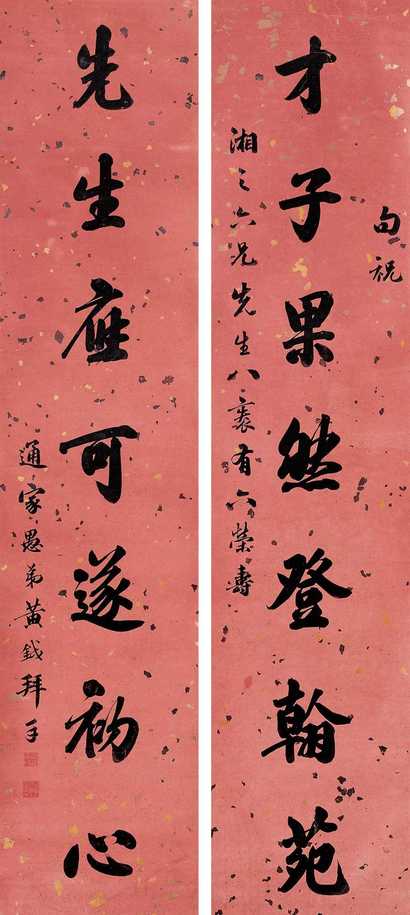 才子果然登翰苑
句祝
湘之六兄先生八袠有六荣寿
先生应可遂初心
通家愚弟黄钺拜手